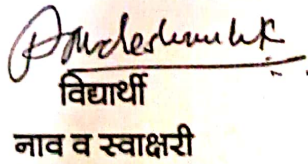 विद्यार्थी
नाव व स्वाक्षरी